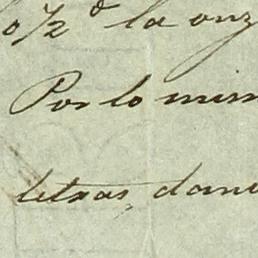 0 1/2 d la onz
Por lo mism
letras, dan